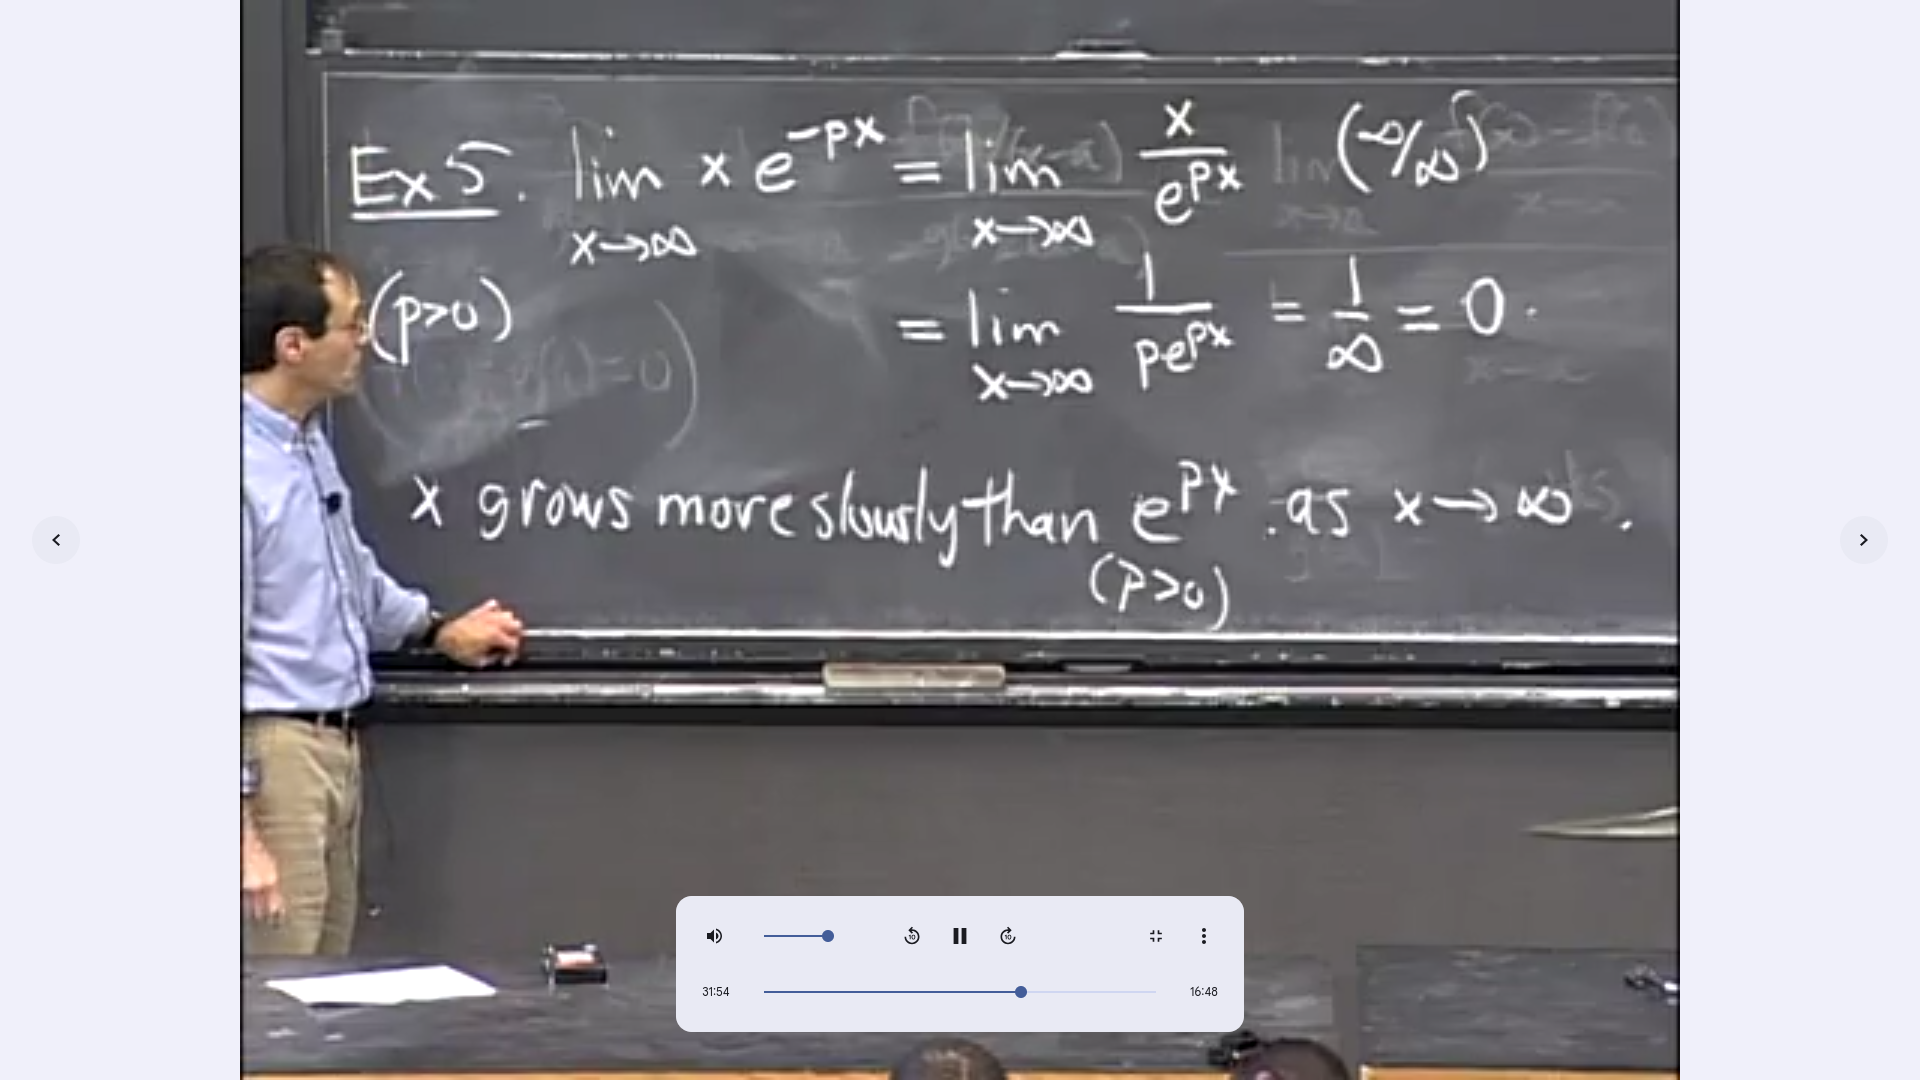 Ex 5. lim x e^-px = lim x/e^px (∞/∞)
x→∞ x→∞
(p>0) = lim 1/pe^px = 1/∞ = 0.
x→∞
x grows more slowly than e^px as x→∞.
(p>0)
10 10
31:54 16:48